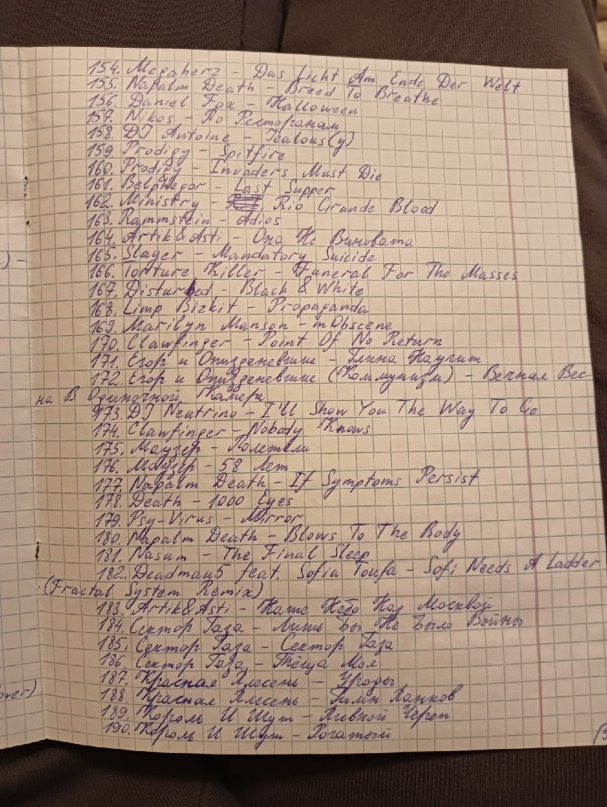 154. Megaherz - Das Licht Am Ende Der Welt
155. Napalm Death - Breed To Breathe
156. Daniel Fox - Halloween
157. Nikos - По Ресторанам
158. DJ Antoine - Jealous(y)
159. Prodigy - Spitfire
160. Prodigy - Invaders Must Die
161. Belphegor - Last Supper
162. Ministry - Rio Grande Blood
163. Rammstein - Adios
164. Artik&Asti - Она Не Виновата
165. Slayer - Mandatory Suicide
166. Torture Killer - Funeral For The Masses
167. Disturbed - Black & White
168. Limp Bizkit - Propaganda
169. Marilyn Manson - mObscene
170. Clawfinger - Point Of No Return
171. Егор и Опизденевшие - Глина Научит
172. Егор и Опизденевшие (Коммунизм) - Вечная Вес-
на В Одиночной Камере
173. DJ Neutrino - I'll Show You The Way To Go
174. Clawfinger - Nobody Knows
175. Маузер - Полетели
176. Маузер - 58 Лет
177. Napalm Death - If Symptoms Persist
178. Death - 1000 Eyes
179. Psy-Virus - Mirror
180. Napalm Death - Blows To The Body
181. Nasum - The Final Sleep
182. Deadmau5 feat. Sofia Toufa - Sofi Needs A Ladder
(Fractal System Remix)
183. Artik&Asti - Наше Небо Над Москвой
184. Сектор Газа - Лишь Бы Не Было Войны
185. Сектор Газа - Сектор Газа
186. Сектор Газа - Тёща Моя
187. Красная Плесень - Уроды
188. Красная Плесень - Гимн Панков
189. Король И Шут - Пивной Череп
190. Король И Шут - Рогатый
over)